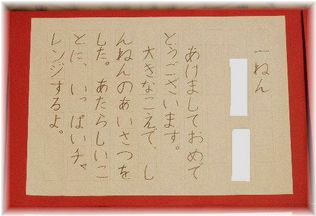 一ねん
あけましておめで
とうございます。
大きなこえで、し
んねんのあいさつを
した。あたらしいこ
とに、いっぱいチャ
レンジするよ。